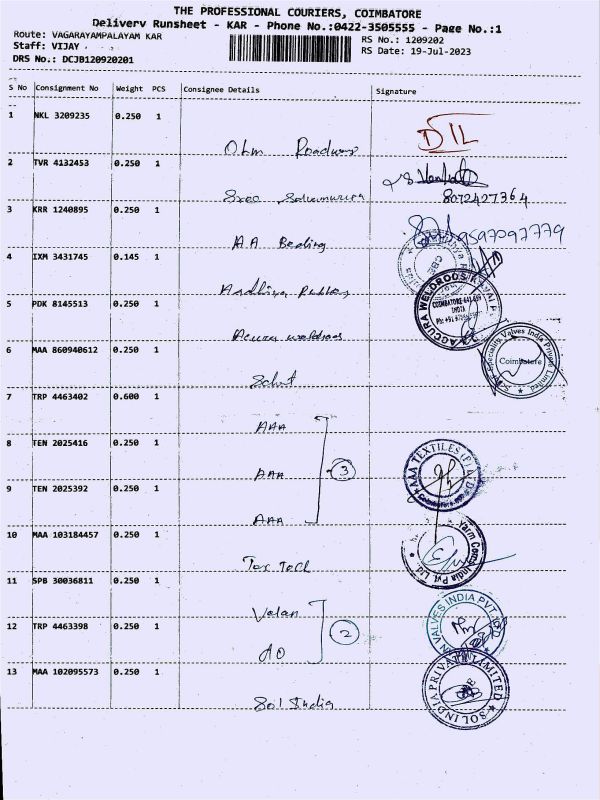 THE PROFESSIONAL COURIERS, COIMBATORE
Delivery Runsheet - KAR - Phone No.:0422-3505555 - Page No.:1
Route: VAGARAYAMPALAYAM KAR
RS No.: 1209202
Staff: VIJAY
RS Date: 19-Jul-2023
DRS No.: DCJB120920201
S No Consignment No Weight PCS Consignee Details Signature
1 NKL 3209235 0.250 1
Ohm Roadways
DIL
2 TVR 4132453 0.250 1
Sree
8072427364
3 KRR 1240895 0.250 1
AA
9597097779
4 IXM 3431745 0.145 1
CBE
5 PDK 8145513 0.250 1
Acura weldroos
ACCURA WELDRODS
COIMBATORE-641 659
INDIA
6 MAA 860940612 0.250 1
Speciality Valves India Private Limited
Coimbatore
7 TRP 4463402 0.600 1
AAA
8 TEN 2025416 0.250 1
AAA
3
AAA TEXTILES (P) LTD
Coimbatore
9 TEN 2025392 0.250 1
AAA
10 MAA 103184457 0.250 1
Tex Tech
Yarm India Pvt. Ltd.
11 SPB 30036811 0.250 1
Valan
VALVES INDIA PVT. LTD
12 TRP 4463398 0.250 1
AO
2
13 MAA 102095573 0.250 1
Sol India
SOL INDIA PRIVATE LIMITED